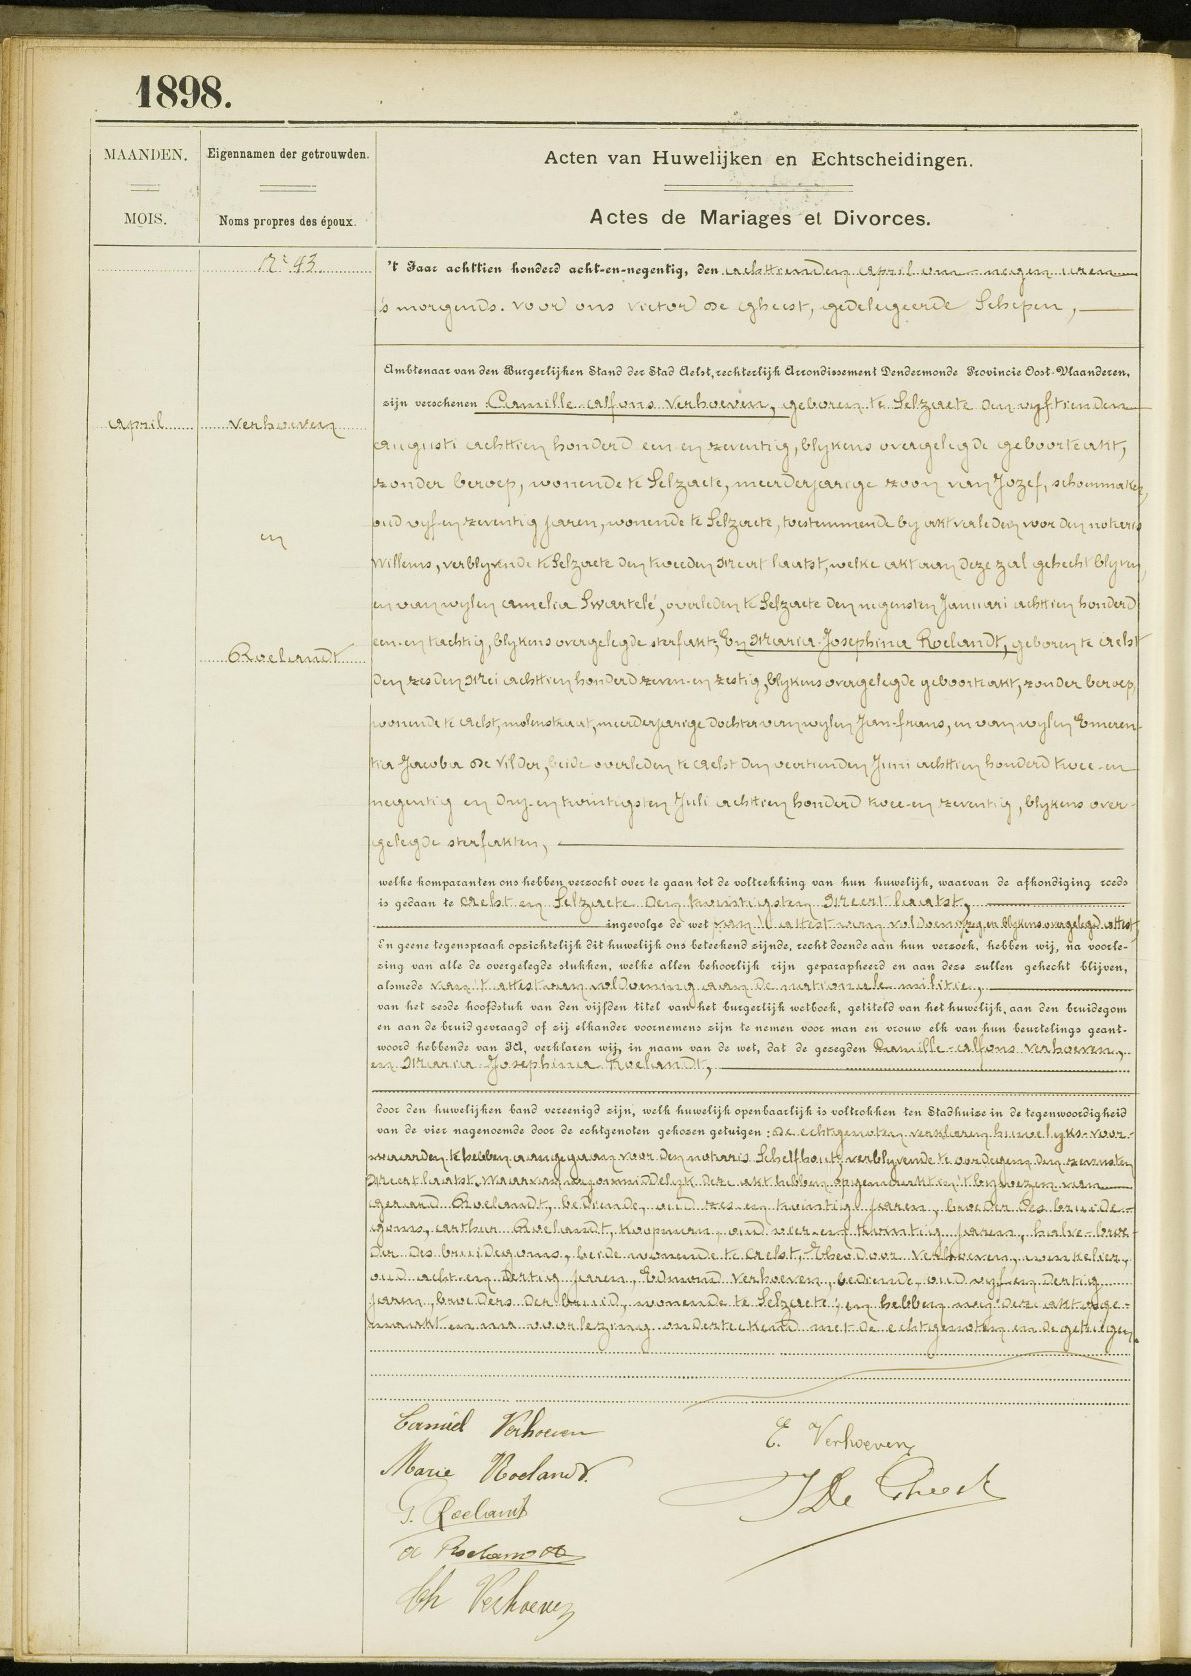 1898.
MAANDEN.
MOIS.
Eigennamen der getrouwden.
Noms propres des époux.
Acten van Huwelijken en Echtscheidingen.
Actes de Mariages et Divorces.
Nr 93
April
Verhoeven
en
Roelandt
't Jaar achttien honderd acht-en-negentig, den achttienden april om negen uren
's morgends. voor ons Victor De Gheest, gedelegeerde Schepen,
Ambtenaar van den Burgerlijken Stand der Stad Aelst, rechterlijk Arrondissement Dendermonde Provincie Oost-Vlaanderen,
zijn verschenen Camille-Alfons Verhoeven, geboren te Selzaete den vyftienden
augusti achttien honderd een-en-zeventig, blykens overgelegde geboorteakt,
zonder beroep, wonende te Selzaete, meerderjarige zoon van Jozef, schoenmaker,
oud vyf-en-zeventig jaren, wonende te Selzaete, toestemmende by akt verleden voor den notaris
Willems, verblyvende te Selzaete den tweeden Meert laatst, welke akt aan deze zal gehecht blyven,
en van wylen Amelia Swartelé, overleden te Selzaete den negensten Januari achttien honderd
een-en-tachtig, blykens overgelegde sterfakt; En Maria-Josephina Roelandt, geboren te Aelst
den zesden Mei achttien honderd zeven-en-zestig, blykens overgelegde geboorteakt, zonder beroep,
wonende te Aelst, molenstraat, meerderjarige dochter van wylen Jan-frans, en van wylen Emeren-
tia Jacoba De Vilder, beide overleden te Aelst den veertienden Juni achttien honderd twee-en-
negentig en dry-en-twintigsten Juli achttien honderd twee-en-zeventig, blykens over-
gelegde sterfakten,
welke komparanten ons hebben verzocht over te gaan tot de voltrekking van hun huwelijk, waarvan de afkondiging reeds
is gedaan te Aelst en Selzaete den twintigsten Meert laatst,
ingevolge de wet blykens overgelegd attest,
En geene tegenspraak opzichtelijk dit huwelijk ons beteekend zijnde, recht doende aan hun verzoek, hebben wij, na voorle-
zing van alle de overgelegde stukken, welke allen behoorlijk zijn geparapheerd en aan deze zullen gehecht blijven,
alsmede van 't attest van voldoening aan de nationale militie,
van het zesde hoofdstuk van den vijfden titel van het burgerlijk wetboek, getiteld van het huwelijk, aan den bruidegom
en aan de bruid gevraagd of zij elkander voornemens zijn te nemen voor man en vrouw elk van hun beurtelings geant-
woord hebbende van JA, verklaren wij, in naam van de wet, dat de gezegden Camille-Alfons Verhoeven,
en Maria-Josephina Roelandt,
door den huwelijken band vereenigd zijn, welk huwelijk openbaarlijk is voltrokken ten Stadhuize in de tegenwoordigheid
van de vier nagenoemde door de echtgenoten gekozen getuigen: De echtgenoten verklaren huwelyks-voor-
waarden te hebben aangegaan voor den notaris Schelfhout, verblyvende te oordegem den zevensten
Meert laatst. Waarvan wy onmiddelyk deze akt hebben opgemaakt in 't bywezen van
gerard Roelandt, bediende, oud zes-en-twintig jaren, broeder des bruide-
goms, arthur Roelandt, koopman, oud vier-en-twintig jaren, halve-broe-
der des bruidegoms, beide wonende te Aelst, Theodoor Verhoeven, winkelier,
oud acht-en-dertig jaren, Edmond Verhoeven, bediende, oud vyf-en-dertig
jaren, broeders der bruid, wonende te Selzaete; en hebben wij deze akt opge-
maakt en na voorlezing onderteekend met de echtgenoten en de getuigen.
Camiel Verhoeven
E. Verhoeven
Marie Roelandt.
V De Gheest
G. Roelandt
A Roelandt
Th Verhoeven